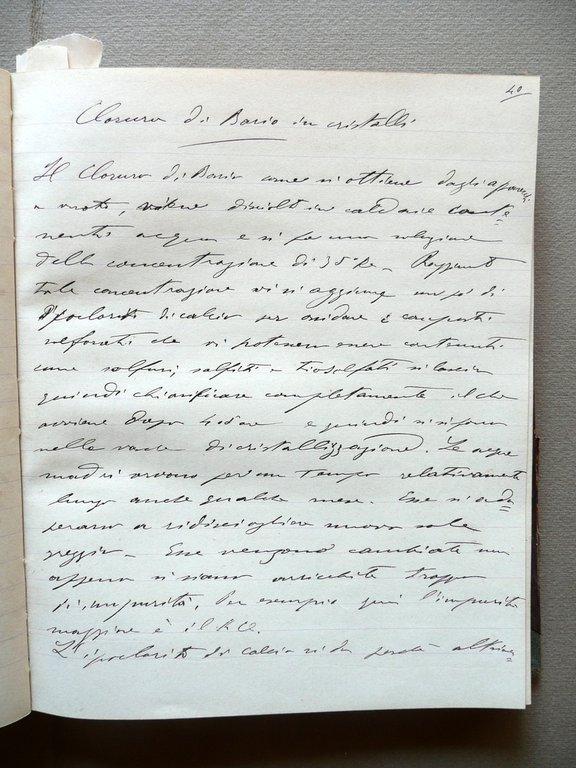 40
Cloruro di Bario in cristalli
Il Cloruro di Bario come si ottiene dagli apparecchi
a vuoto, viene disciolto in caldaie conte=
nenti acqua e si fa una soluzione
della concentrazione di 35° Be – Raggiunta
tale concentrazione vi si aggiunge un po' di
Ipoclorito di calcio per ossidare i composti
solforati che vi potessero essere contenuti
come solfuri, solfiti e tiosolfati si lascia
quindi chiarificare completamente il che
avviene dopo 4 ore e quindi si pone
nelle vasche di cristallizzazione. Le acque
madri servono per un tempo relativamente
lungo anche qualche mese. Esse si ado=
perano a ridisciogliere nuovo sale
greggio – Esse vengono cambiate non
appena si siano arricchite troppo
di impurità, Per esempio qui l'impurità
maggiore è il KCl.
L'ipoclorito di calcio si dà perché altrime=